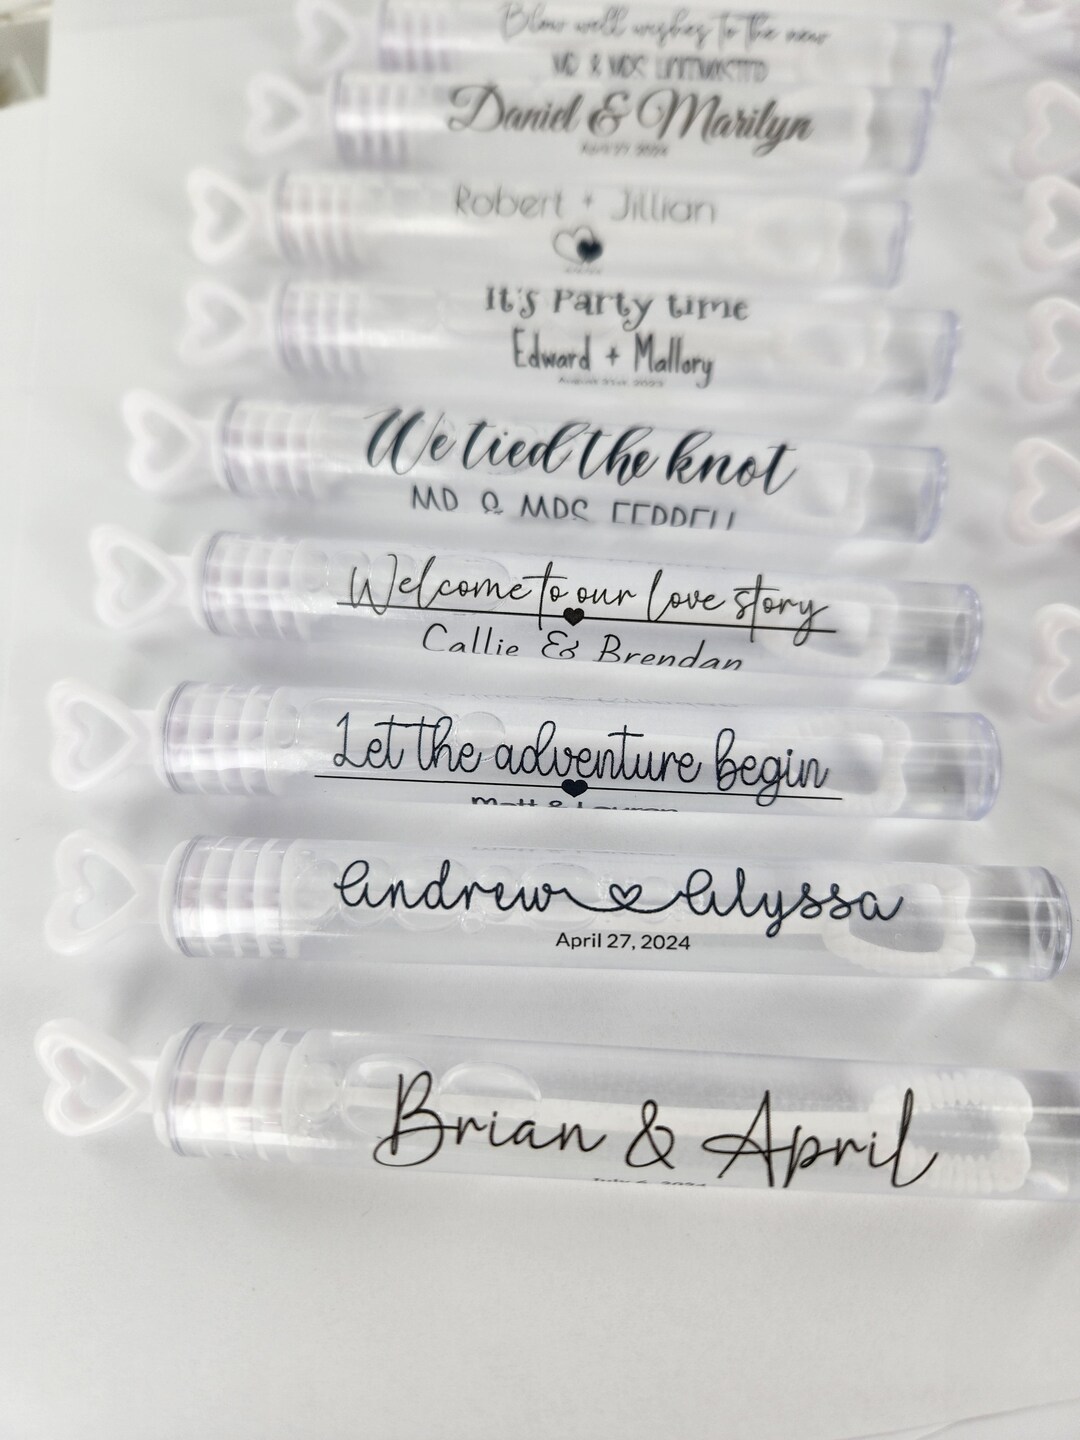 Blow well wishes to the new
MR & MRS
Daniel & Marilyn
April 27, 2024
Robert + Jillian
It's Party time
Edward + Mallory
We tied the knot
MR & MRS FERRELL
Welcome to our love story
Callie & Brendan
Let the adventure begin
Matt & Lauren
Andrew Alyssa
April 27, 2024
Brian & April
July 6, 2024